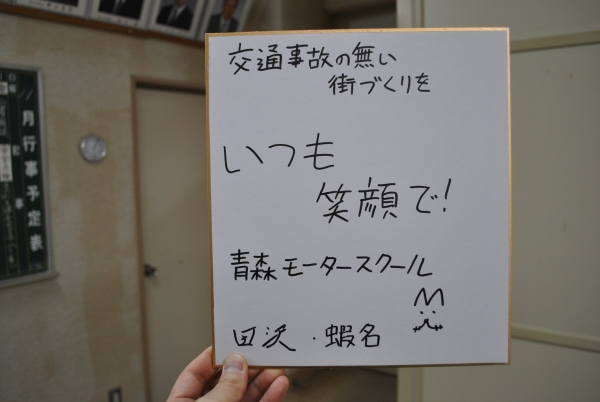 交通事故の無い
街づくりを
いつも
笑顔で!
青森モータースクール
田沢・蝦名
月行事予定表